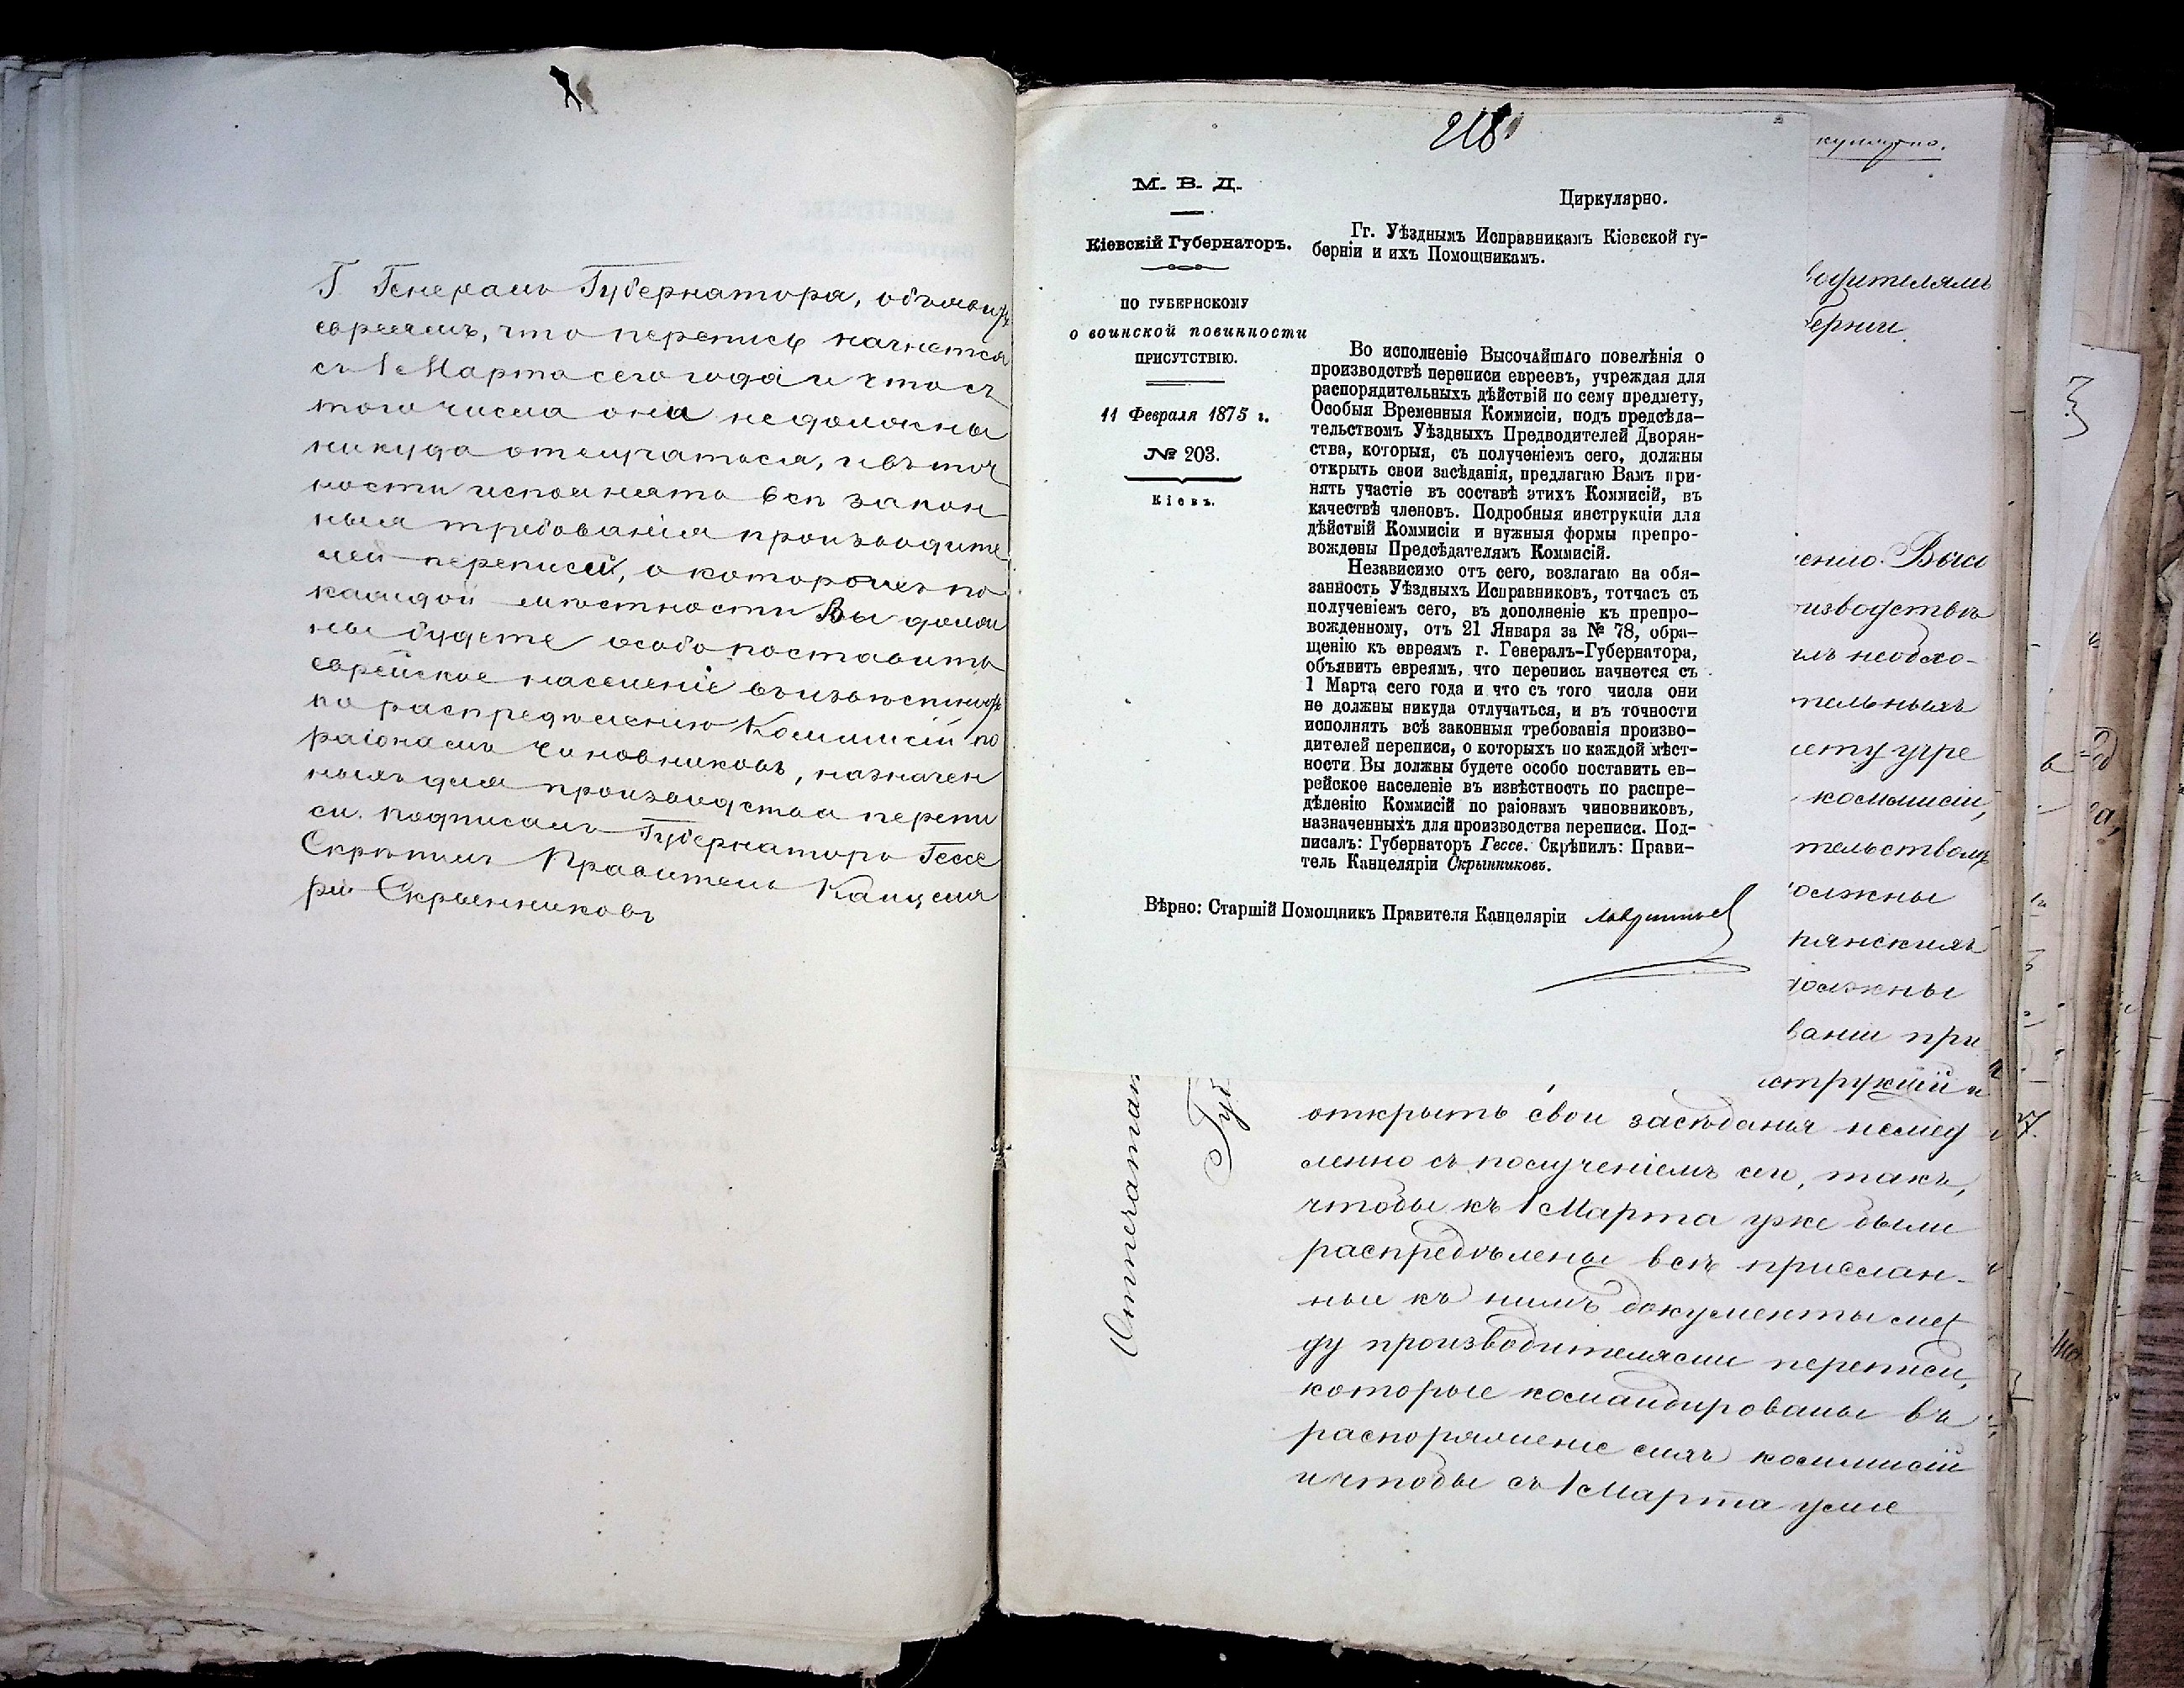 Г. Генералъ Губернатора, объявить
евреямъ, что перепись начнется
съ 1 Марта сего года и что съ
того числа они не должны
никуда отлучаться, и въ точ
ности исполнять всѣ закон
ныя требованія производите
лей переписи, о которыхъ по
каждой мѣстности Вы долж
ны будете особо поставить
еврейское населеніе въ извѣстность
по распредѣленію Коммисій по
раіонамъ чиновниковъ, назначен
ныхъ для производства перепи
си. подписалъ Губернаторъ Гессе
Скрѣпилъ Правитель Канцеля
ріи Скрынниковъ
218
М. В. Д.
Кіевскій Губернаторъ.
ПО ГУБЕРНСКОМУ
о воинской повинности
ПРИСУТСТВІЮ.
11 Февраля 1875 г.
№ 203.
Кіевъ.
Циркулярно.
Гг. Уѣзднымъ Исправникамъ Кіевской гу-
берніи и ихъ Помощникамъ.
Во исполненіе Высочайшаго повелѣнія о
производствѣ переписи евреевъ, учреждая для
распорядительныхъ дѣйствій по сему предмету,
Особыя Временныя Коммисіи, подъ предсѣда-
тельствомъ Уѣздныхъ Предводителей Дворян-
ства, которыя, съ полученіемъ сего, должны
открыть свои засѣданія, предлагаю Вамъ при-
нять участіе въ составѣ этихъ Коммисій, въ
качествѣ членовъ. Подробныя инструкціи для
дѣйствій Коммисіи и нужныя формы препро-
вождены Предсѣдателямъ Коммисій.
Независимо отъ сего, возлагаю на обя-
занность Уѣздныхъ Исправниковъ, тотчасъ съ
полученіемъ сего, въ дополненіе къ препро-
вожденному, отъ 21 Января за № 78, обра-
щенію къ евреямъ г. Генералъ-Губернатора,
объявить евреямъ, что перепись начнется съ
1 Марта сего года и что съ того числа они
не должны никуда отлучаться, и въ точности
исполнять всѣ законныя требованія произво-
дителей переписи, о которыхъ по каждой мѣст-
ности Вы должны будете особо поставить ев-
рейское населеніе въ извѣстность по распре-
дѣленію Коммисій по раіонамъ чиновниковъ,
назначенныхъ для производства переписи. Под-
писалъ: Губернаторъ Гессе. Скрѣпилъ: Прави-
тель Канцеляріи Скрынниковъ.
Вѣрно: Старшій Помощникъ Правителя Канцеляріи
кулярно.
водителямъ
берніи
енію Высо
оизводствѣ
имъ необхо-
тельныхъ
мету учре
коммисіи,
тельствомъ
должны
рянскихъ
должны
ваніи при
струкціи и
открыть свои засѣданія немед
ленно съ полученіемъ сего, такъ,
чтобы къ 1 Марта уже были
распредѣлены всѣ прислан-
ные къ нимъ документы меж
ду производителями переписи,
которые командированы въ
распоряженіе сихъ коммисій
и чтобы съ 1 Марта уже
Отпечатан
Губ